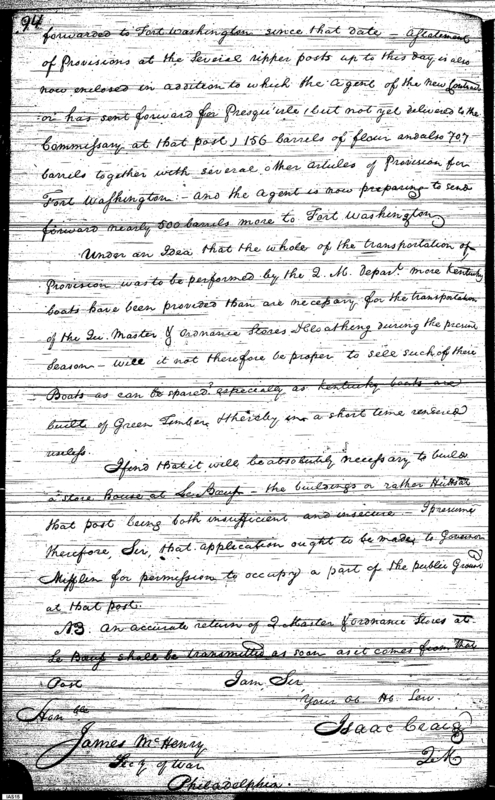 94
forwarded to Fort Washington since that date – a Statement
of Provisions at the Several upper posts up to this day is also
now enclosed in addition to which the Agent of the new Contract
or has sent forward for Presqu'isle (but not yet delivered to the
Commissary at that post) 156 barrels of flour and also 707
barrels together with several other articles of Provision for
Fort Washington – and the Agent is now preparing to send
forward nearly 500 barrels more to Fort Washington
Under an Idea that the whole of the transportation of
Provision was to be performed by the Q. M. depart. more Kentucky
boats have been provided than are necessary for the transportation
of the Qu. Master & Ordnance Stores & Cloathing during the present
Season – will it not therefore be proper to sell such of these
Boats as can be spared? especially as Kentucky boats are
built of Green Timber & thereby in a short time rendered
useless.
I find that it will be absolutely necessary to build
a Store House at Le Bœuf – the buildings or rather Hutts at
that post being both insufficient and insecure – I presume
therefore, Sir, that application ought to be made to Governor
Mifflin for permission to occupy a part of the public Ground
at that post.
N.B. An accurate return of Q Master & ordnance Stores at
Le Bœuf shall be transmitted as soon as it comes from that
Post
I am Sir
Your Ob. Hb. Serv.
Isaac Craig
Q M
Honble
James McHenry
Secy of War
Philadelphia.